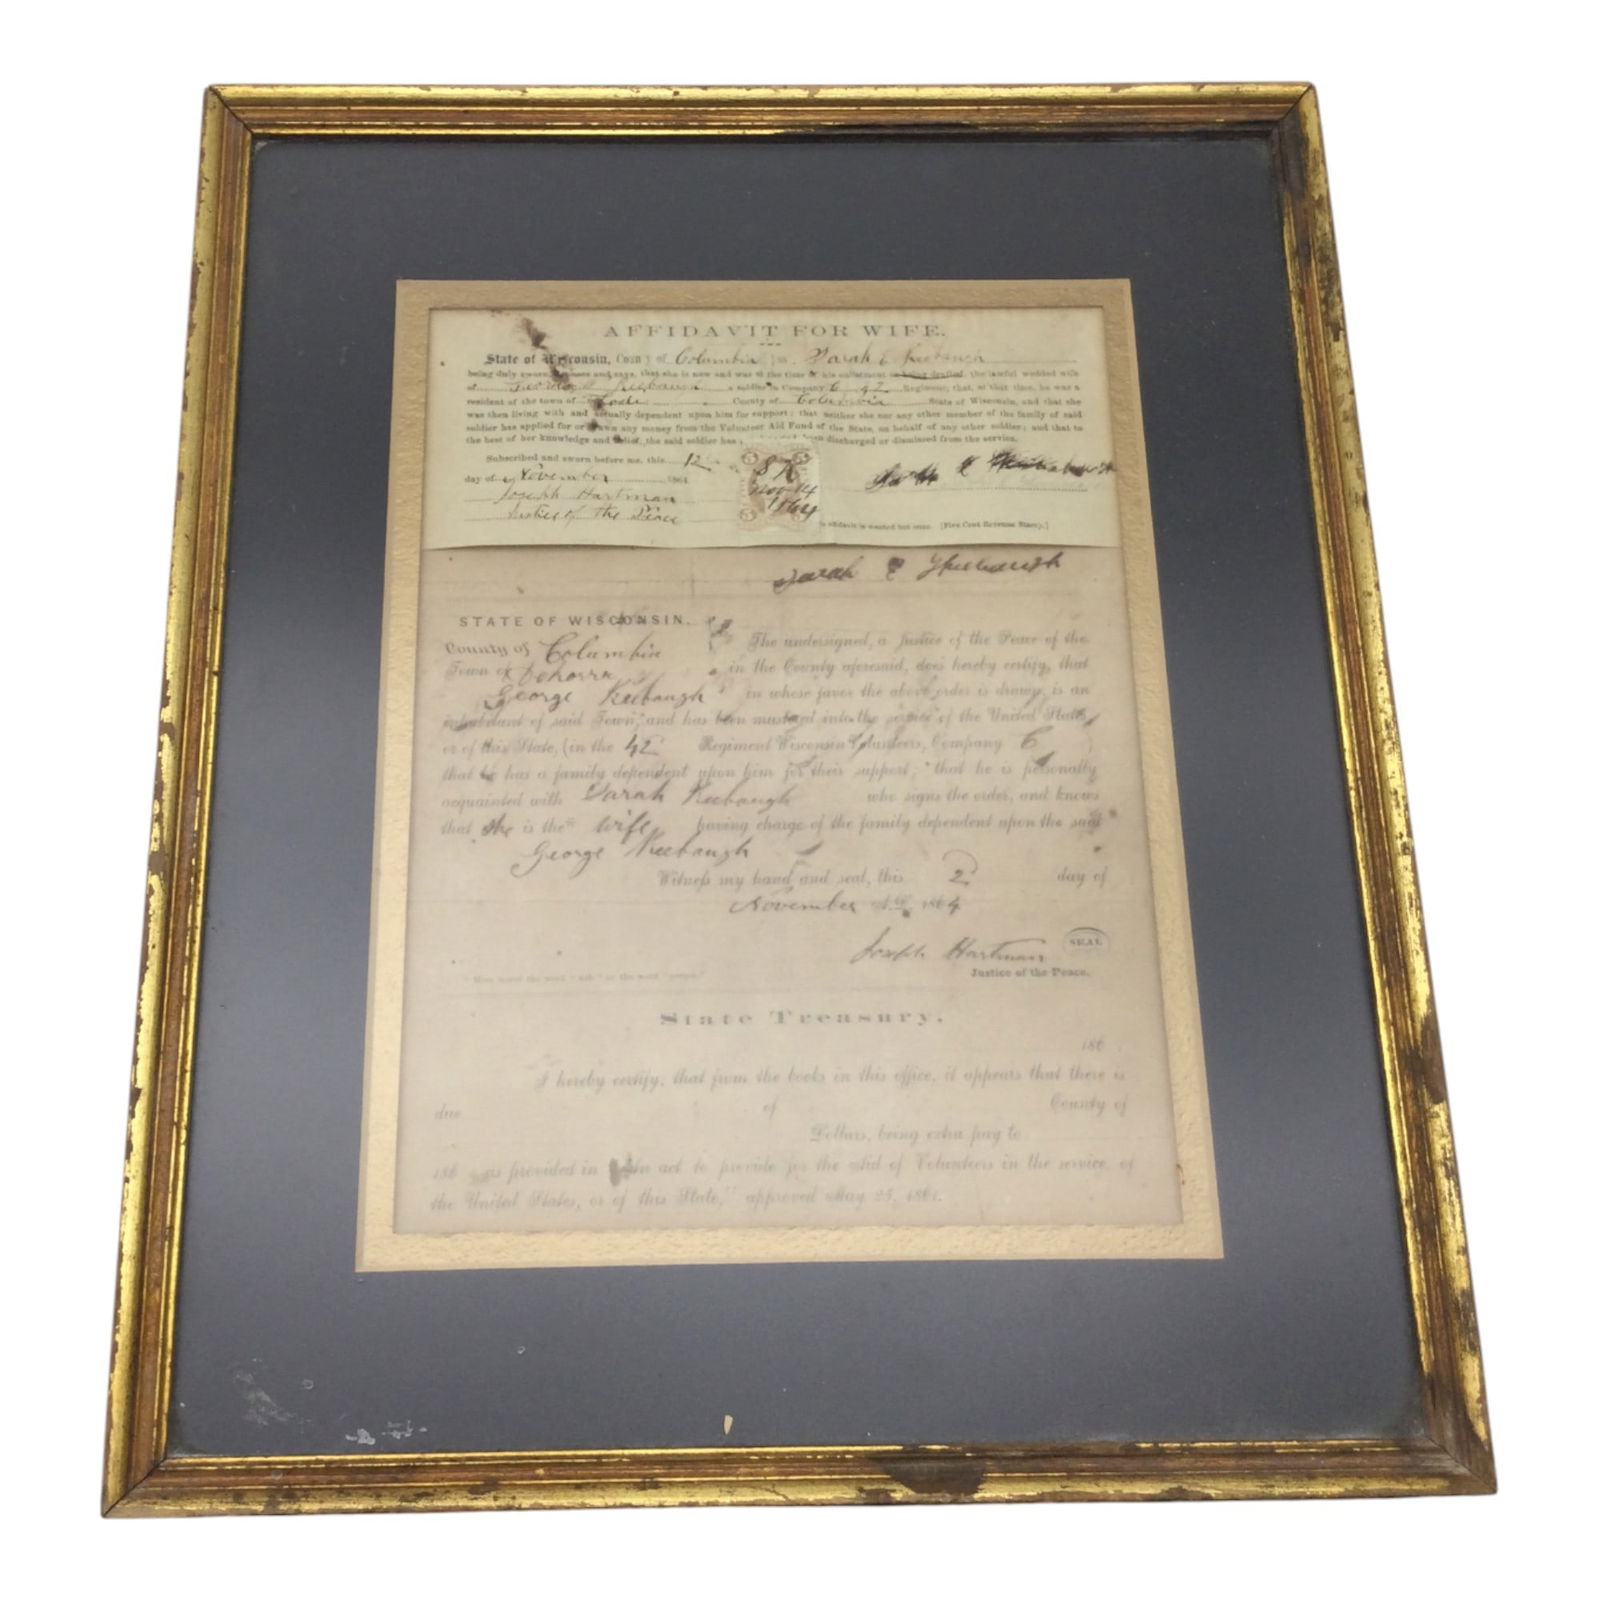 AFFIDAVIT FOR WIFE.
State of Wisconsin, County of Columbia ss. Sarah E
being duly sworn, deposes and says, that she is now and was at the time of his enlistment or being drafted, the lawful wedded wife
of a soldier in Company C 42 Regiment; that, at that time, he was a
resident of the town of County of Columbia State of Wisconsin, and that she
was then living with and actually dependent upon him for support; that neither she nor any other member of the family of said
soldier has applied for or drawn any money from the Volunteer Aid Fund of the State, on behalf of any other soldier; and that to
the best of her knowledge and belief, the said soldier has been discharged or dismissed from the service.
Subscribed and sworn before me, this 12
day of November 1864
Joseph Hartman
Justice of the Peace
5 5
S K
Nov 14
1864
5 5
affidavit is wanted but once. [Five Cent Revenue Stamp.]
Sarah E
STATE OF WISCONSIN.
County of Columbia The undersigned, a Justice of the Peace of the
Town of Dekorra in the County aforesaid, does hereby certify, that
George Keebaugh in whose favor the above order is drawn, is an
inhabitant of said Town, and has been mustered into the service of the United States,
or of this State, (in the 42 Regiment Wisconsin Volunteers, Company C
that he has a family dependent upon him for their support; that he is personally
acquainted with Sarah Keebaugh who signs the order, and knows
that she is the wife having charge of the family dependent upon the said
George Keebaugh
Witness my hand and seal, this 2 day of
November A.D. 1864
Joseph Hartman SEAL
Justice of the Peace.
State Treasury.
186 .
I hereby certify, that from the books in this office, it appears that there is
due of County of
Dollars, being extra pay to
186 as provided in "An act to provide for the aid of Volunteers in the service of
the United States, or of this State," approved May 25, 1861.